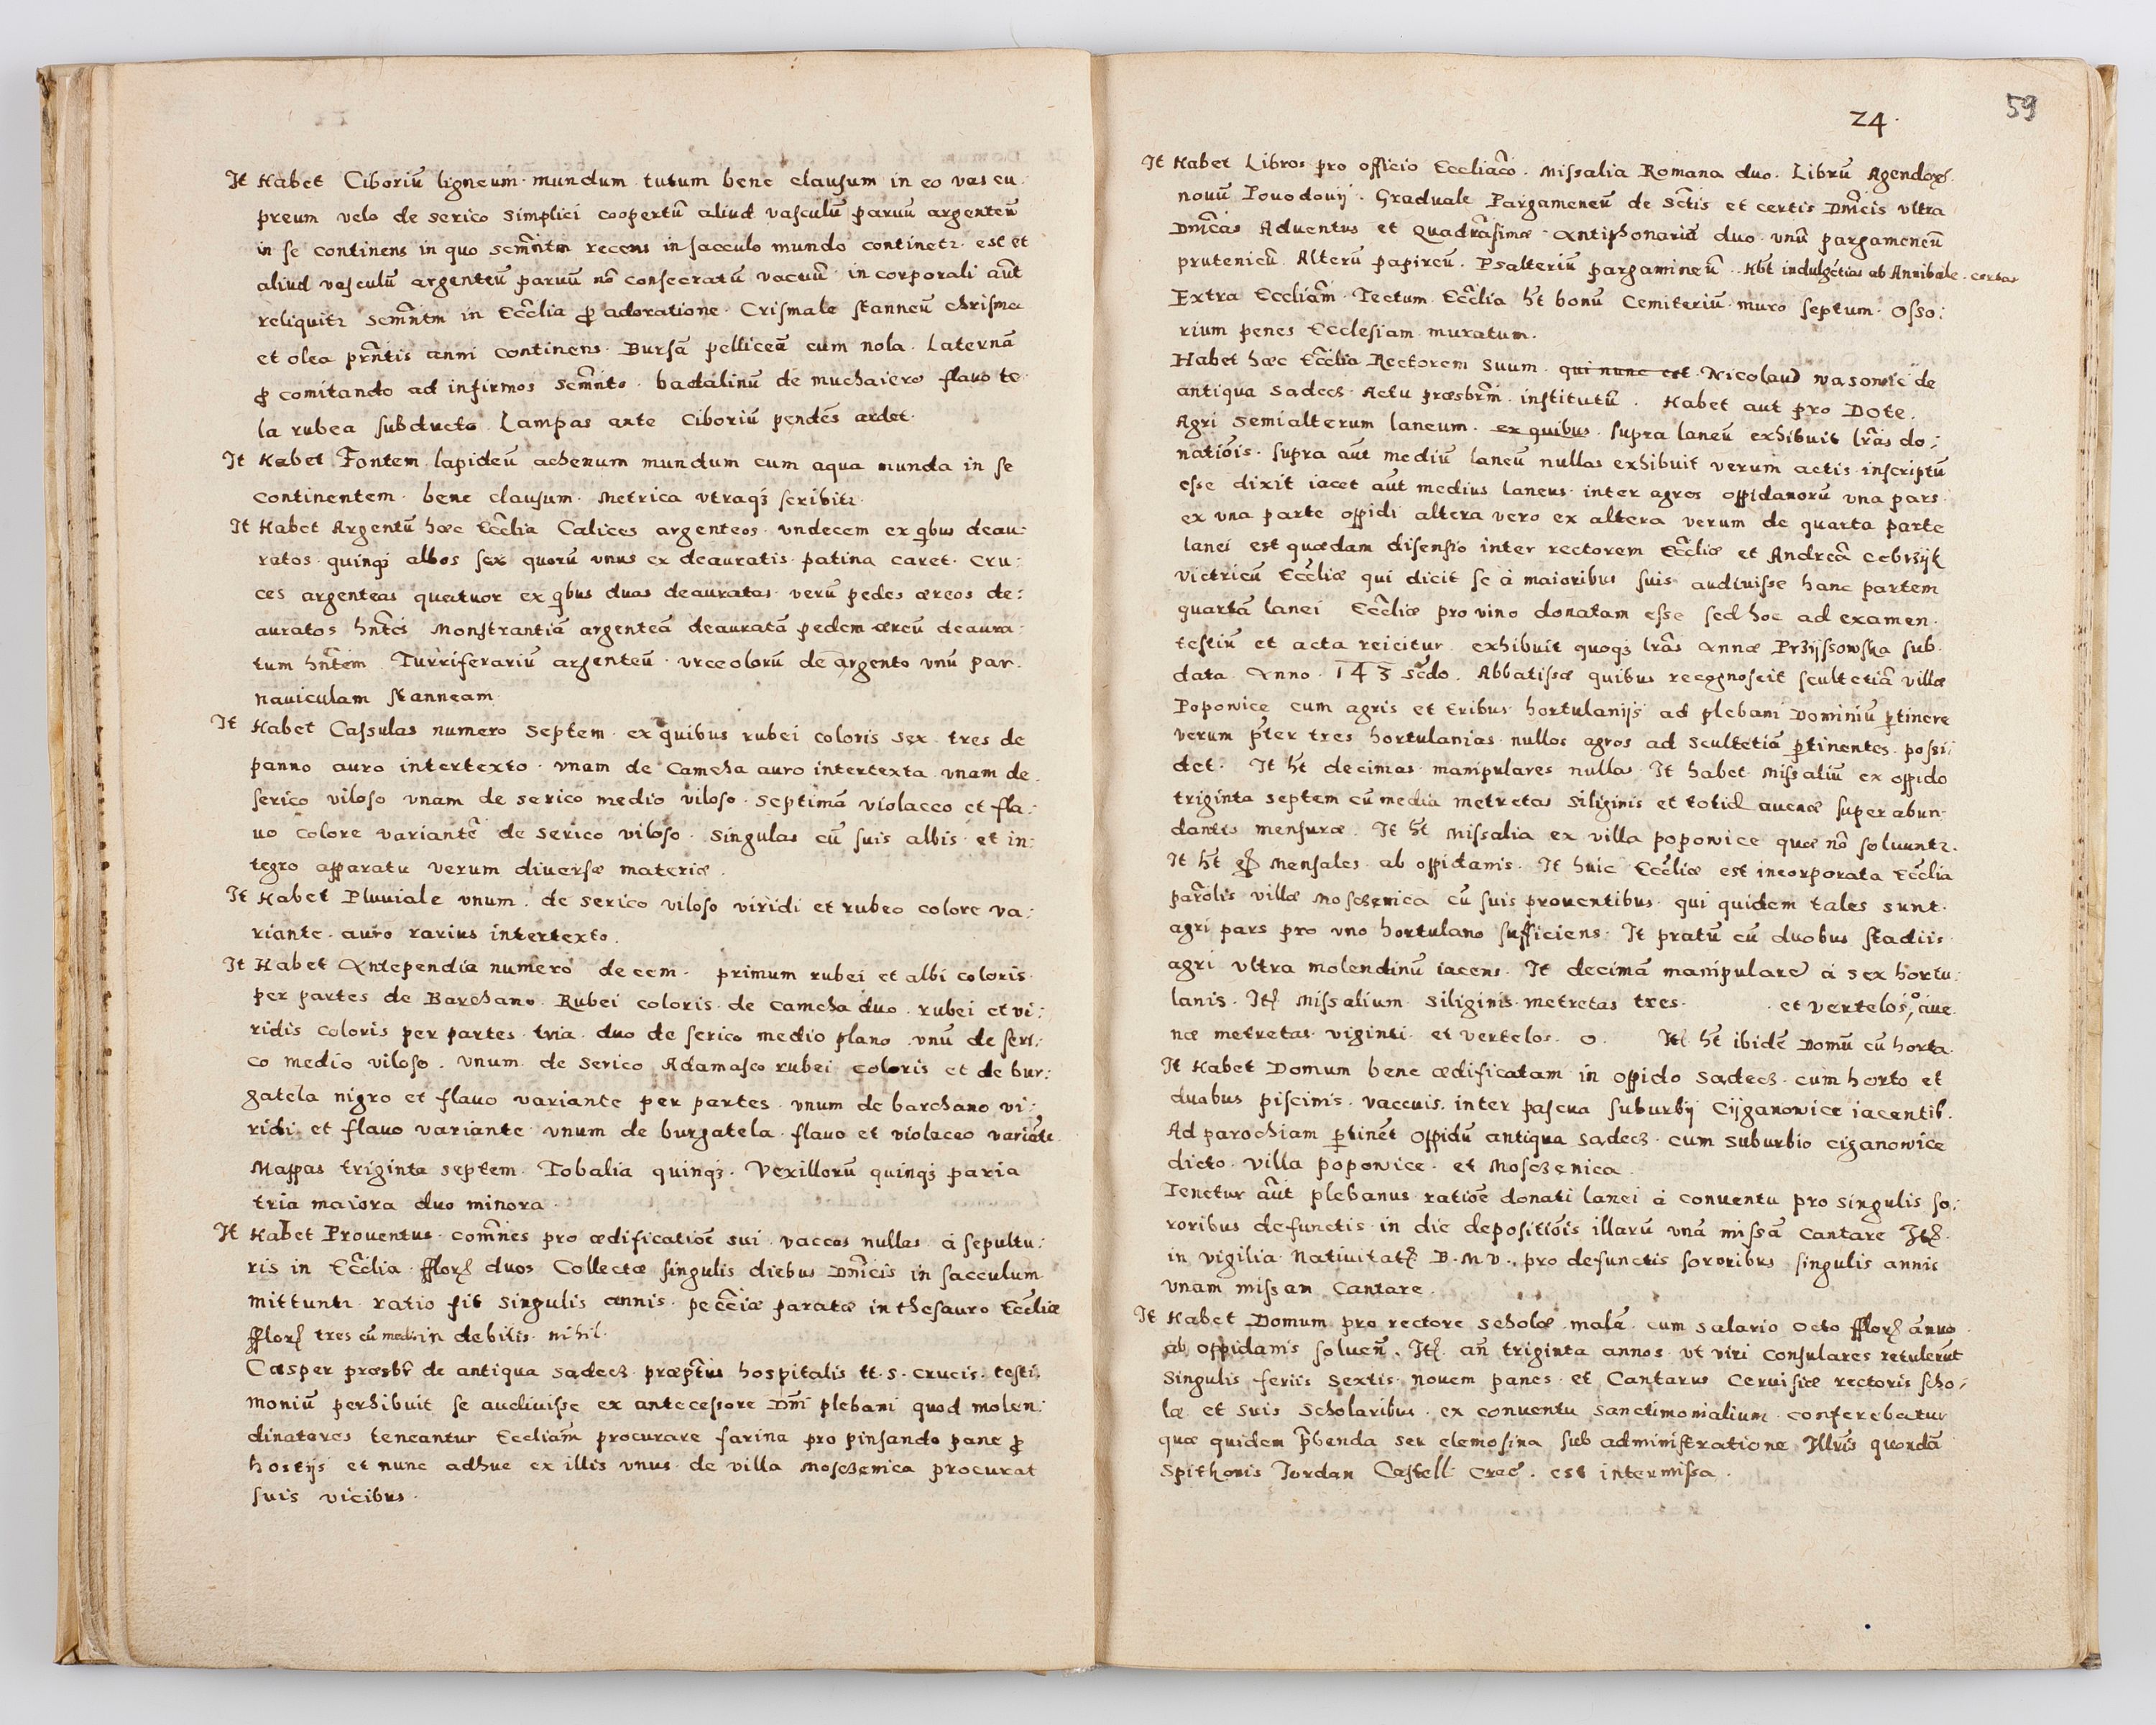 It Habet Ciboriũ ligneum mundum tutum bene clausum in eo vas cu
preum velo de serico simplici coopertũ aliud vasculũ paruũ argenteũ
in se continens in quo scm̃ntm recens in sacculo mundo continetr. est et
aliud vasculũ argenteũ paruũ nõ consecratũ vacuũ in corporali aũt
reliquitr scm̃ntm in Eccl̃ia ꝓ adoratione. Crismale stanneũ chrisma
et olea prñtis anni continens. Bursã pelliceã cum nola. Laternã
ꝓ comitando ad infirmos scm̃nto. badalinũ de muchaiero flauo te
la rubea subducto Lampas ante Ciboriũ pendẽs ardet.
It Habet Fontem lapideũ achenum mundum cum aqua munda in se
continentem. bene clausum. Metrica vtraqʒ scribitr.
It Habet Argentũ hæc Eccl̃ia Calices argenteos. vndecem ex qĩbus deau:
ratos quinqʒ albos sex quorũ vnus ex deauratis patina caret. Cru:
ces argenteas quatuor ex qĩbus duas deauratas verũ pedes æreos de:
auratos hñtes Monstrantiã argenteã deauratã pedem æreũ deaura:
tum hñtem. Turriferariũ argenteũ. vrceolorũ de argento vnũ par.
nauiculam stanneam
It Habet Cassulas numero septem. ex quibus rubei coloris sex tres de
panno auro intertexto. vnam de Camcha auro intertexta vnam de
serico viloso vnam de serico medio viloso. septimã violaceo et fla:
uo colore variantẽ de serico viloso. singulas cũ suis albis et in:
tegro apparatu verum diuersæ materiæ.
It Habet Pluuiale vnum. de serico viloso viridi et rubeo colore va:
riante. auro rarius intertexto.
It Habet Antependia numero decem. primum rubei et albi coloris
per partes de Barchano. Rubei coloris de camcha duo. rubei et vi:
ridis coloris per partes tria. duo de serico medio plano vnũ de seri:
co medio viloso. vnum de serico Adamasco rubei coloris et de bur:
gatela nigro et flauo variante per partes. vnum de barchano vi:
ridi et flauo variante vnum de burgatela flauo et violaceo variãte.
Mappas triginta septem. Tobalia quinqʒ. Vexillorũ quinqʒ paria
tria maiora duo minora.
It Habet Prouentus com̃nes pro ædificatiõe sui vaccas nullas à sepultu:
ris in Eccl̃ia fflorꝭ duos Collectæ singulis diebus Dn̄icis in sacculum
mittuntr ratio fit singulis annis. pecc̃iæ paratæ in thesauro Eccl̃iæ
fflorꝭ tres cũ medio in debitis nihil.
Casper præsbr̃ de antiqua Sadecz præp̃tus hospitalis tt. S. Crucis. testi:
moniũ perhibuit se audiuisse ex antecessore Dñi plebani quod molen:
dinatores teneantur Eccliam̃ procurare farina pro pinsando pane ꝓ
hostijs et nunc adhuc ex illis vnus de villa Mosczenica procurat
suis vicibus.
24.
59
It Habet Libros pro officio Eccliac̃o. Missalia Romana duo. Librũ Agendorꝭ.
nouũ Pouodouij. Graduale Pargameneũ de Sc̃tis et certis Dn̄icis vltra
Dn̄icas Aduentus et Quadrãsimæ. Antiphonaria duo vnũ pargameneũ
prutenicũ. Alterũ papireũ. Psalteriũ pargamineũ. Hb̃t indulgẽtias ab Annibale. certas
Extra Eccliam̃ Tectum Eccl̃ia h̃t bonũ Cemiteriũ muro septum. Osso:
rium penes Ecclesiam muratum.
Habet hæc Eccl̃ia Rectorem suum qui nunc est Nicolaũ Wasowic de
antiqua Sadecz. Actu præsbr̃m institutũ. Habet aut pro Dote.
Agri semialterum laneum. ex quibus supra laneũ exhibuit lrãs do:
natiõis. supra aũt mediũ laneũ nullas exhibuit verum actis inscriptũ
esse dixit iacet aũt medius laneus inter agros oppidanorũ vna pars
ex vna parte oppidi altera vero ex altera verum de quarta parte
lanei est quædam disensio inter rectorem Eccl̃iæ et Andreã Cebrzÿk
victricũ Eccl̃iæ qui dicit se à maioribus suis audiuisse hanc partem
quartã lanei Eccl̃iæ pro vino donatam esse sed hoc ad examen
testiũ et acta reicitur exhibuit quoqʒ lrãs Annæ Przÿssowska sub
data Anno 143 scdo. Abbatissæ quibus recognoscit scultetiã villæ
Popowice cum agris et tribus hortulanijs ad plebani Dominiũ ꝑtinere
verum p̃ter tres hortulanias nullos agros ad scultetiã ꝑtinentes possi:
det. It h̃t decimas manipulares nullas It habet Missaliũ ex oppido
triginta septem cũ media metretas siliginis et totid auenæ superabun
dantis mensuræ. It h̃t Missalia ex villa popowice quæ nõ soluuntr.
It h̃t Mensales ab oppidanis. It huic Eccl̃iæ est incorporata Eccl̃ia
parõlis villæ Mosczenica cũ suis prouentibus qui quidem tales sunt.
agri pars pro vno hortulano sufficiens. It pratũ cũ duobus stadiis
agri vltra molendinũ iacens. It decimã manipularẽ à sex hortu:
lanis. Itꝭ Missalium siliginis metretas tres. et vertelos, o aue
næ metretas viginti et vertelos. o. Itꝭ h̃t ibidẽ Domũ cũ horto.
It Habet Domum bene ædificatam in oppido Sadecz cum horto et
duabus piscinis vaccuis. inter pascua suburbij Cijganowice iacentib.
Ad parochiam ꝑtinẽt Oppidũ antiqua Sadecz cum suburbio ciganowice
dicto. villa popowice. et Mosczenica.
Tenetur aũt plebanus ratiõe donati lanei à conuentu pro singulis so:
roribus defunctis in die depositiõis illarũ vnã missã cantare Itꝭ.
in vigilia Natiuitatꝭ B. M V. pro defunctis sororibus singulis annis
vnam missam cantare.
It Habet Domum pro rectore scholæ malã cum salario octo fflorꝭ ãnuo
ab oppidanis soluen̄. Itꝭ an̄ triginta annos vt viri consulares retulerũt
singulis feriis sextis nouem panes et Cantarus Ceruisiæ rectoris scho:
læ et suis scholaribus ex conuentu sanctimonialium conferebatur
quæ quidem p̃benda seu elemosina sub administratione Illũs quondã
Spithonis Jordan Castell: Crac̃. est intermissa.